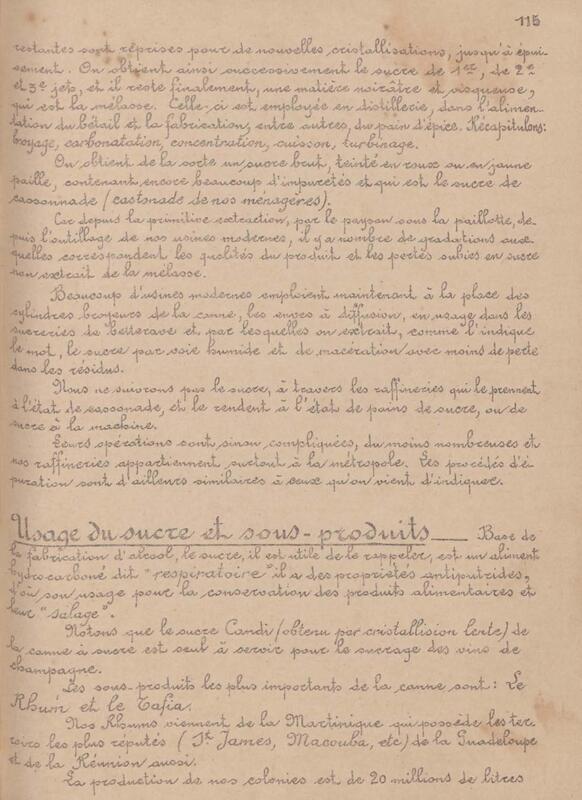 115
restantes sont reprises pour de nouvelles cristallisations, jusqu'à épui-
sement. On obtient ainsi successivement le sucre de 1er, de 2e
et 3e jets, et il reste finalement, une matière noirâtre et visqueuse,
qui est la mélasse. Celle-ci est employée en distillerie, dans l'alimen-
tation du bétail et la fabrication, entre autres, du pain d'épice. Récapitulons:
broyage, carbonatation, concentration, cuisson, turbinage.
On obtient de la sorte un sucre brut, teinté en roux ou en jaune
paille, contenant encore beaucoup d'impuretés et qui est le sucre de
cassonnade (castonade de nos ménagères).
Car depuis la primitive extraction, par le paysan sous la paillotte, de-
puis l'outillage de nos usines modernes, il y a nombre de gradations aux-
quelles correspondent les qualités du produit et les pertes subies en sucre
non extrait de la mélasse.
Beaucoup d'usines modernes emploient maintenant à la place des
cylindres broyeurs de la canne, les cuves à diffusion, en usage dans les
sucreries de betterave et par lesquelles on extrait, comme l'indique
le mot, le sucre par voie humide et de macération avec moins de perte
dans les résidus.
Nous ne suivrons pas le sucre, à travers les raffineries qui le prennent
à l'état de cassonade, et le rendent à l'états de pains de sucre, ou de
sucre à la machine.
Leurs opérations sont, sinon compliquées, du moins nombreuses et
nos raffineries appartiennent surtout à la métropole. Les procédés d'é-
puration sont d'ailleurs similaires à ceux qu'on vient d'indiquer.
Usage du sucre et sous-produits__ Base de
la fabrication d'alcool, le sucre, il est utile de le rappeler, est un aliment
hydrocarboné dit "respiratoire" il a des propriétés antiputrides,
d'où son usage pour la conservation des produits alimentaires et
leur "salage".
Notons que le sucre Candi (obtenu par cristallision lente) de
la canne à sucre est seul à servir pour le sucrage des vins de
champagne.
Les sous-produits les plus importants de la canne sont: Le
Rhum et le Tafia.
Nos Rhums viennent de la Martinique qui possède les ter-
roirs les plus réputés (St James, Macouba, etc) de la Guadeloupe
et de la Réunion aussi.
La production de nos colonies est de 20 millions de litres